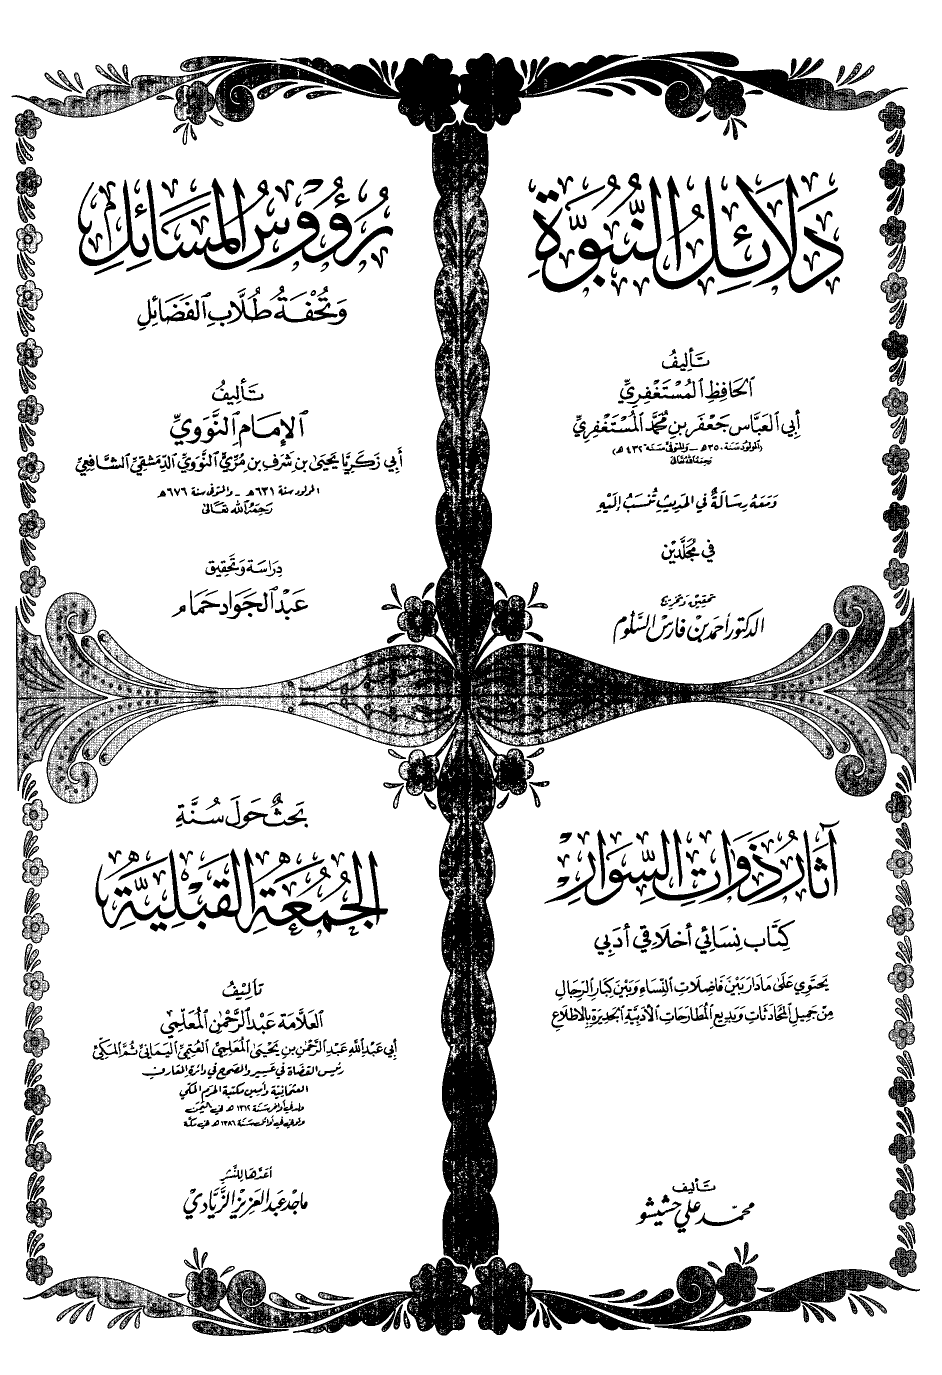 دَلَائِلُ النُّبُوَّةِ
تَأليفُ
الحَافِظِ المُسْتَغْفِرِيِّ
أَبِي العَبَّاسِ جَعْفَرِ بنِ مُحَمَّد المُسْتَغْفِرِيِّ
(المولود سَنَة ٣٥٠هـ - والمتوفى سَنَة ٤٣٢هـ)
رَحِمَهُ اللهُ تَعَالَى
وَمَعَهُ رِسَالَةٌ في الحَدِيثِ تُنسَبُ إِلَيْهِ
في مُجَلَّدَيْن
تحقيق وتخريج
الدكتور أحمد بن فارس السَّلُّوم
رُؤُوسُ المَسَائِلِ
وَتُحْفَةُ طُلَّابِ الفَضَائِلِ
تَأليفُ
الإِمَامِ النَّوَوِيِّ
أَبِي زَكَرِيَّا يَحْيَىٰ بن شَرَف بن مُرِّيِّ النَّوَوِيِّ الدِّمَشْقِيِّ الشَّافِعِيِّ
المولود سنة ٦٣١هـ - والمتوفى سنة ٦٧٦هـ
رَحِمَهُ اللهُ تَعَالَى
دِرَاسَة وَتَحْقِيق
عَبْد الجَوَاد حَمَام
آثَارُ ذَوَاتِ السِّوَارِ
كِتَاب نِسَائي أخلَاقي أدَبي
يَحتَوِي عَلَى مَادَار بَيْنَ فَاضِلَاتِ النِّسَاءِ وَبَيْنَ كِبَارِ الرِجَالِ
مِن جَميلِ المُحَادَثَاتِ وَبَدِيعِ المُطَارحَاتِ الأدَبيَّةِ الجَدِيرَةِ بِالاطِّلَاعِ
تَأليف
محمّد علي حشيشو
بَحثٌ حَولَ سُنَّةِ
الجُمُعَةِ القَبْلِيَّةِ
تَألِيفُ
العَلَّامَة عَبْد الرَّحْمٰن المُعَلِّمي
أَبِي عَبْدِ اللهِ عَبْدِ الرَّحْمٰنِ بنِ يَحْيَىٰ المُعَلِّمِيِّ العُتَمِيِّ اليَمَانيِّ ثُمَّ المَكِّيِّ
رئيس القضاة في عسير والمصحح في دائرة المعارف
العثمانية وأمين مكتبة الحرم المكي
ولد في أواخر سَنَة ١٣١٢ هـ في اليمن
وتوفي في أوائل سَنَة ١٣٨٦ هـ في مكة
أعَدَّهَا لِلنَّشْرِ
ماجد عبد العزيز الزِّيَادي